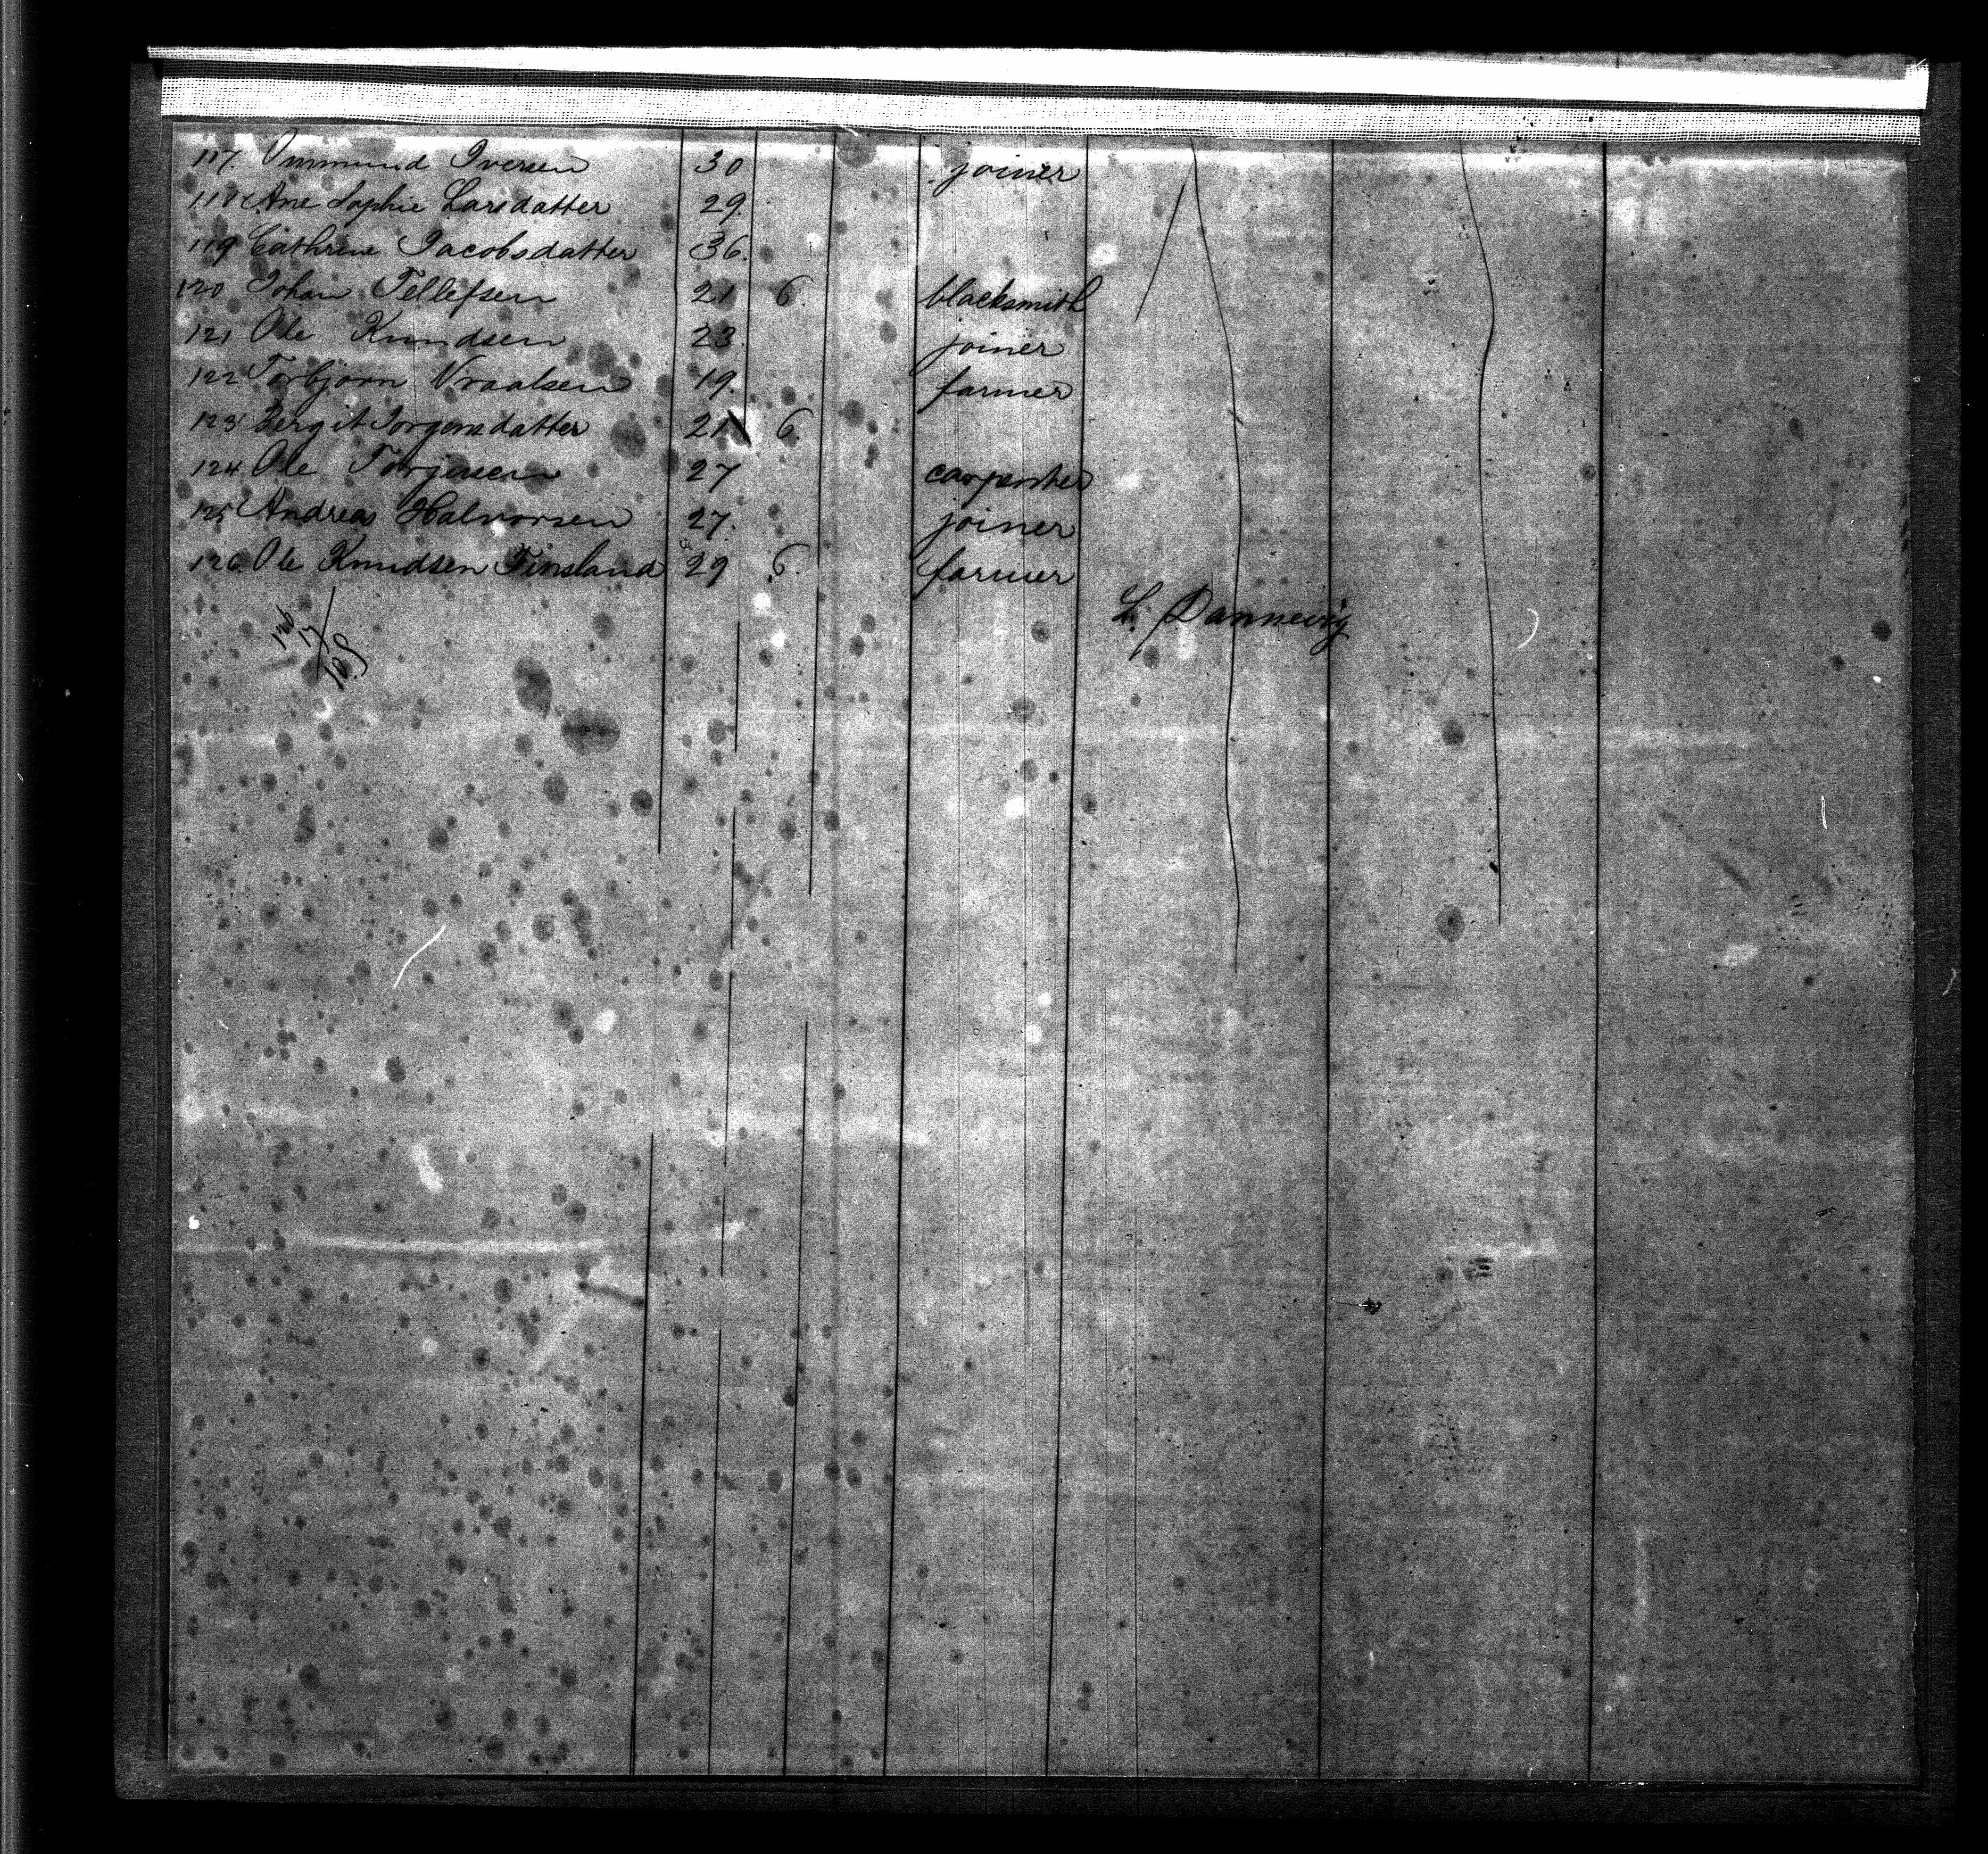 117. Ommund Iversen 30 joiner
118 Ane Sophie Larsdatter 29.
119 Cathrine Jacobsdatter 36.
120 Johan Tellefsen 21 6. blacksmith
121 Ole Knudsen 23. joiner
122 Torbjorn Vraalsen 19. farmer
123 Bergit Jorgensdatter 21 6.
124. Ole Torjusen 27 carpenter
125. Andreas Halvorsen 27. joiner
126. Ole Knudsen Finsland 29 6. farmer
L. Dannevig
126
17